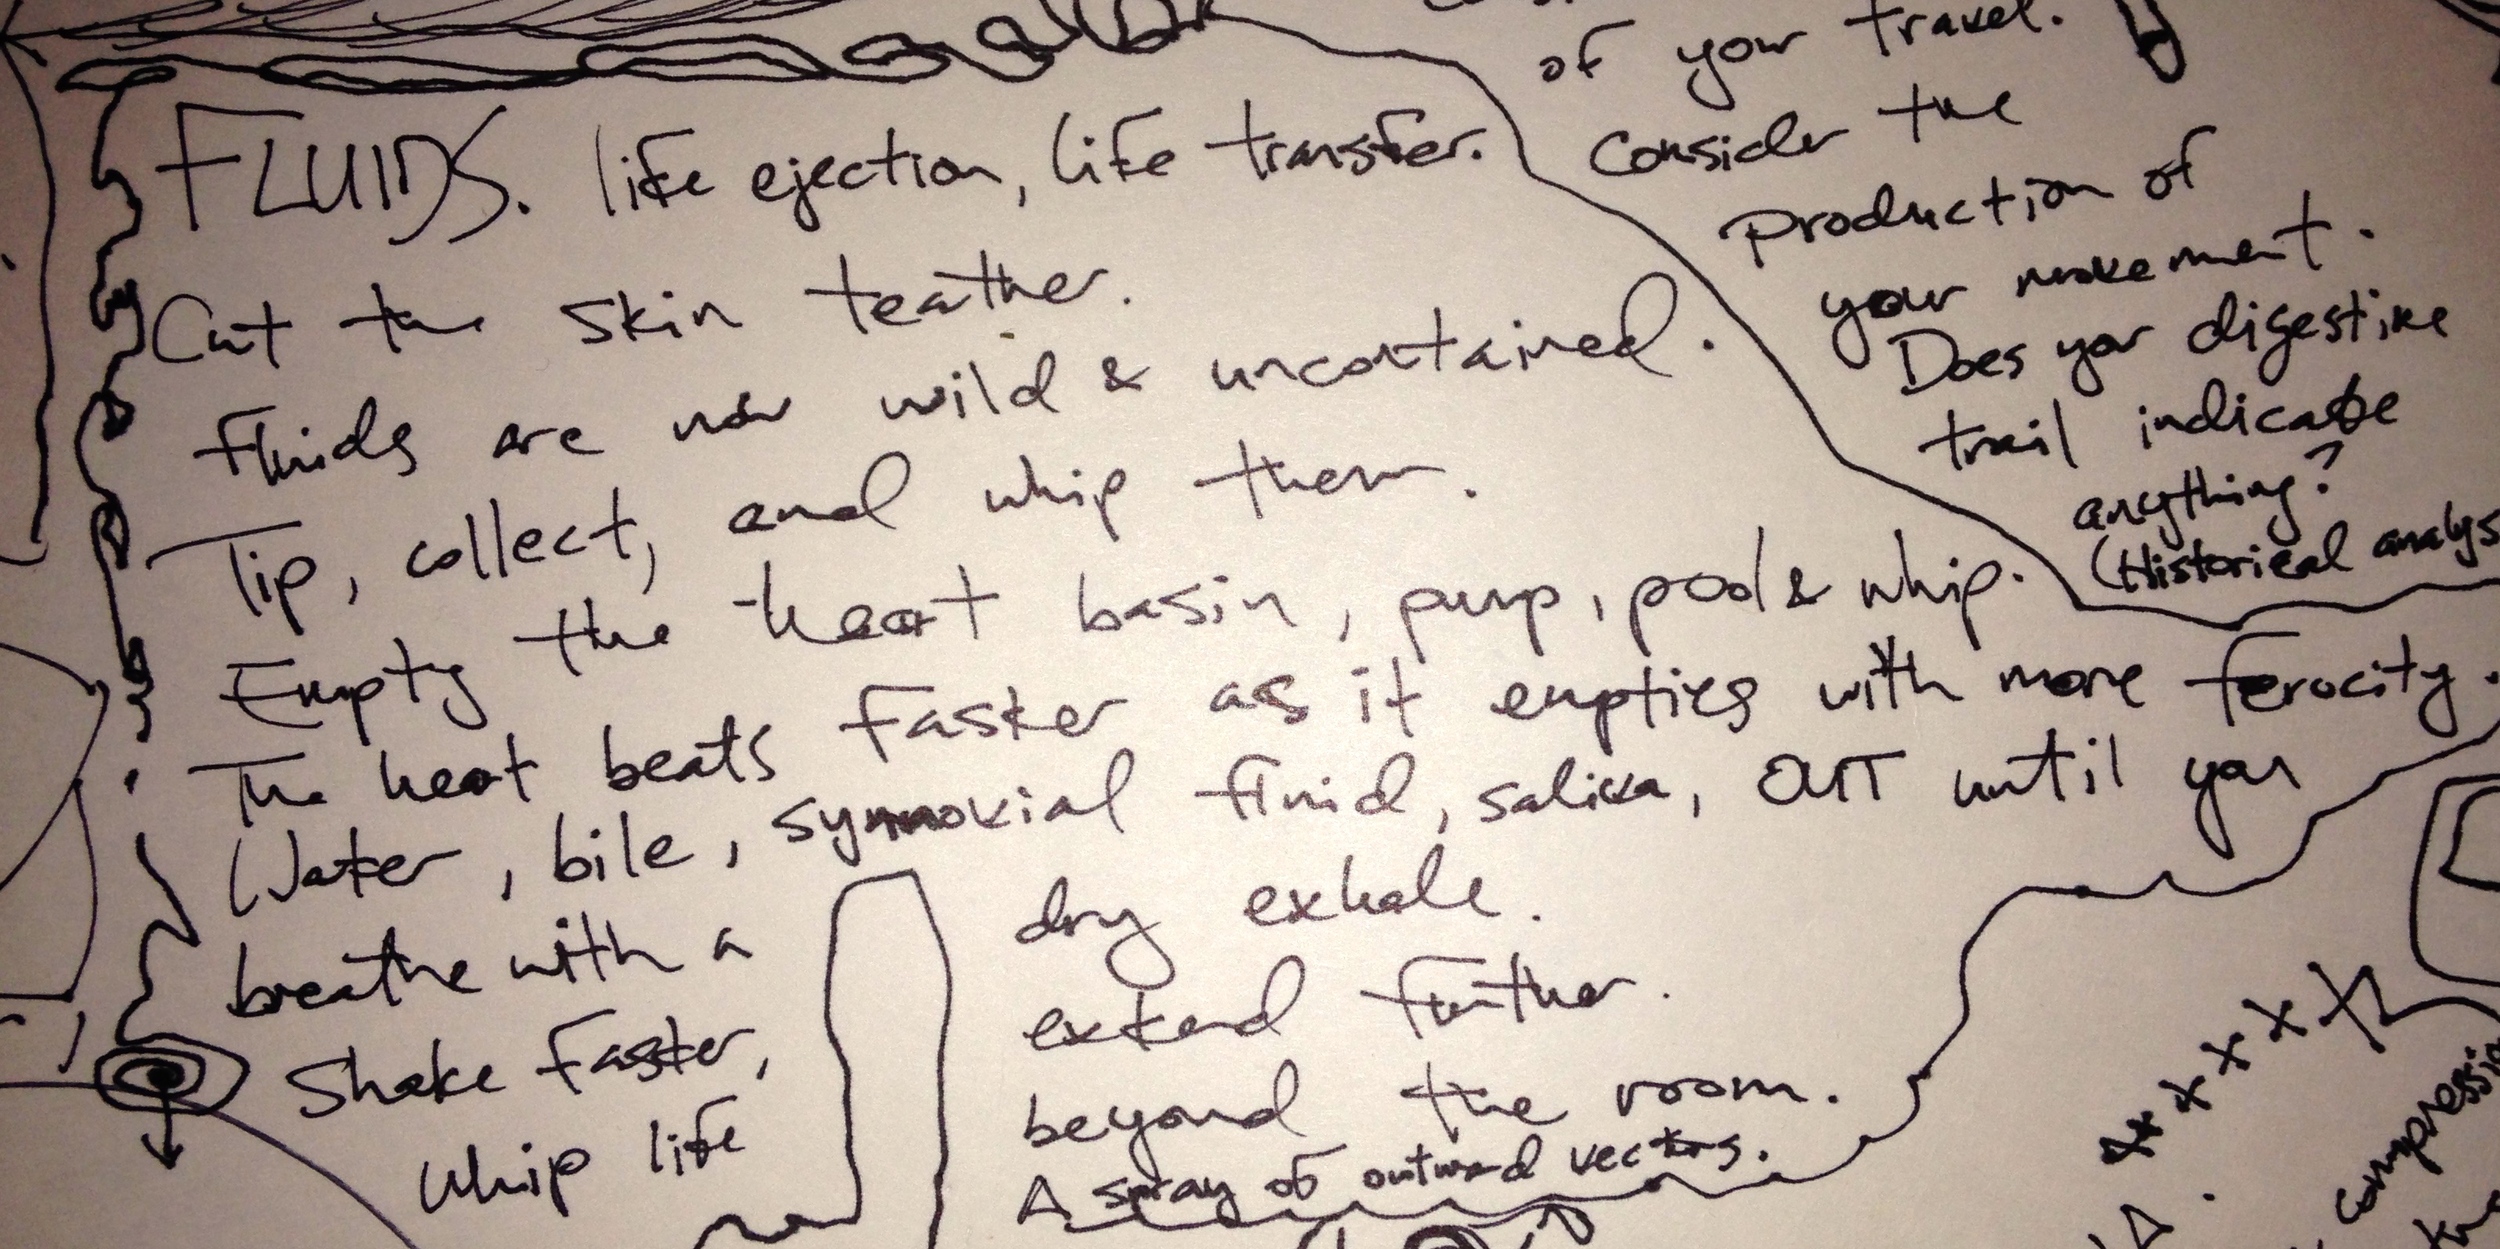 FLUIDS. life ejection, life transfer.
Cut the skin teather.
Fluids are now wild & uncontained.
Tip, collect, and whip them.
Empty the heart basin, pump, pool & whip.
The heart beats faster as it empties with more ferocity.
Water, bile, synnovial fluid, saliva, OUT until you
breathe with a dry exhale.
Shake faster, extend further.
whip life beyond the room.
A spray of outward vectors.
of your travel.
Consider the
production of
your movement.
Does your digestive
trail indicate
anything?
(Historical analys
compressio